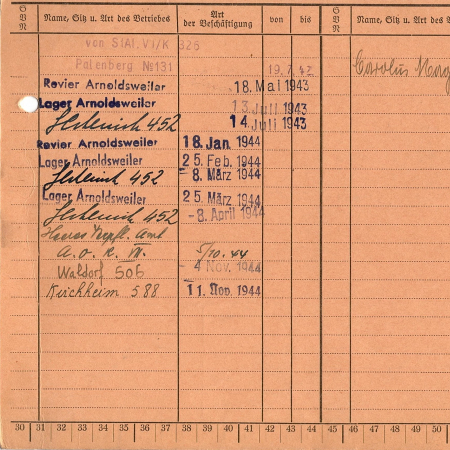 G B N
Name, Sitz u. Art des Betriebes
Art der Beschäftigung
von
bis
G B N
Name, Sitz u. Art des B
von Stal. VI/K 326
Palenberg No 131 19.7.42
Revier Arnoldsweiler 18. Mai 1943
Lager Arnoldsweiler 13. Juli 1943
452 14. Juli 1943
Revier Arnoldsweiler 18. Jan. 1944
Lager Arnoldsweiler 25. Feb. 1944
452 - 8. März 1944
Lager Arnoldsweiler 25. März 1944
452 - 8. April 1944
Amt
A. O. K. VII. 5/10.44
Waldorf 505 - 4. Nov. 1944
Kirchheim 588 11. Nov. 1944
Carolus
30 31 32 33 34 35 36 37 38 39 40 41 42 43 44 45 46 47 48 49 50